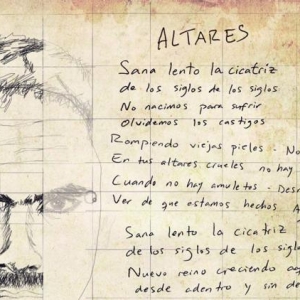 ALTARES
Sana lento la cicatriz
de los siglos de los siglos
No nacimos para sufrir
Olvidemos los castigos
Rompiendo viejas pieles - No
En tus altares crueles no hay
Cuando no hay amuletos - Desn
Ver de que estamos hechos A
Sana lento la cicatriz
de los siglos de los siglo
Nuevo reino creciendo aq
desde adentro y sin de